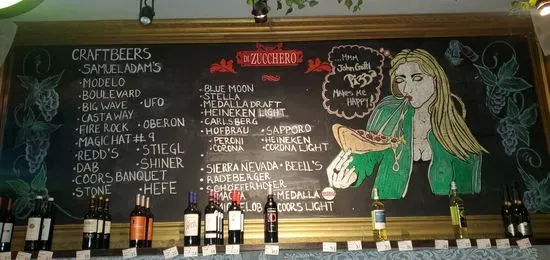 CRAFTBEERS
• SAMUEL ADAM'S
• MODELO
• BOULEVARD
• BIG WAVE • UFO
• CASTAWAY
• FIRE ROCK • OBERON
• MAGIC HAT #9
• REDD'S • STIEGL
• DAB • SHINER
• COORS BANQUET
• STONE • HEFE
DI ZUCCHERO
• BLUE MOON
• STELLA
• MEDALLA DRAFT
• HEINEKEN LIGHT
• CARLSBERG
• HOFBRAU • SAPPORO
• PERONI • HEINEKEN
• CORONA • CORONA LIGHT
• SIERRA NEVADA • BELL'S
• RADEBERGER
• SCHÖFFERHOFER
• MAGNA • MEDALLA
• MICHELOB • COORS LIGHT
..HMM
MAKES ME
HAPPY!